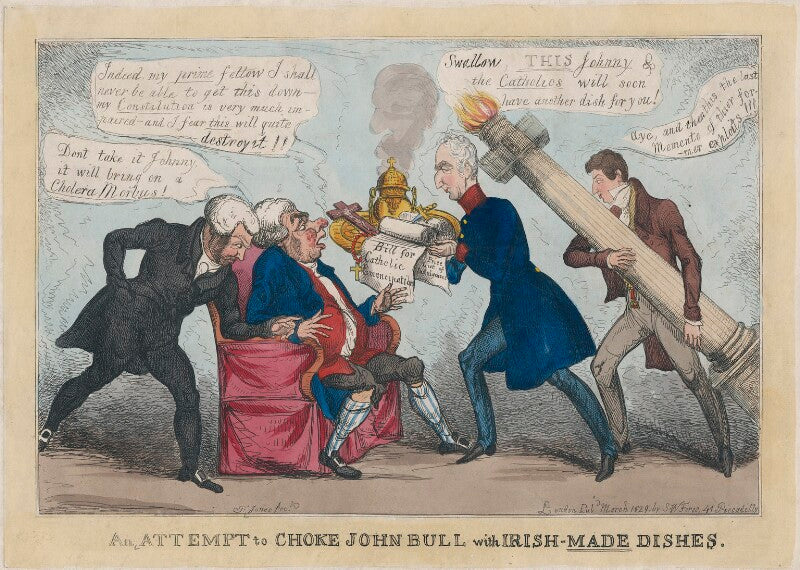 Indeed my prime fellow I shall
never be able to get this down—
my Constitution is very much im-
paired—and I fear this will quite
destroy it!!
Dont take it Johnny
it will bring on a
Cholera Morbus!
Swallow THIS Johnny &
the Catholics will soon
have another dish for you!
Aye, and then this the last
Memento of their for-
mer exploits!!!
Bill for
Catholic
Emancipation
T. Jones fect.
London Pubd. March 1829 by S W Fores, 41 Piccadilly
An, ATTEMPT to CHOKE JOHN BULL with IRISH-MADE DISHES.